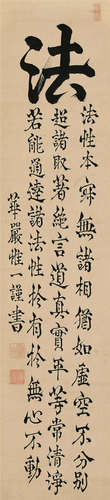 法
法性本寂無諸相猶如虛空不分別
超諸取著絕言道真實平等常清淨
若能通達諸法性於有於無心不動
華嚴惟一謹書